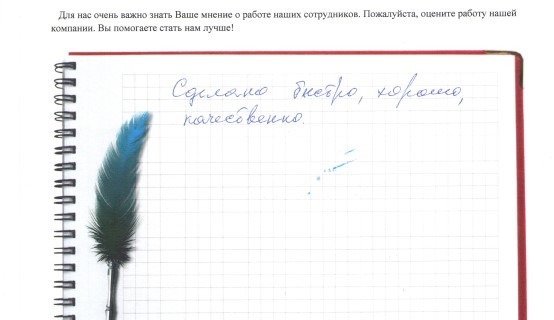 Для нас очень важно знать Ваше мнение о работе наших сотрудников. Пожалуйста, оцените работу нашей
компании. Вы помогаете стать нам лучше!
Сделано быстро, хорошо,
качественно.